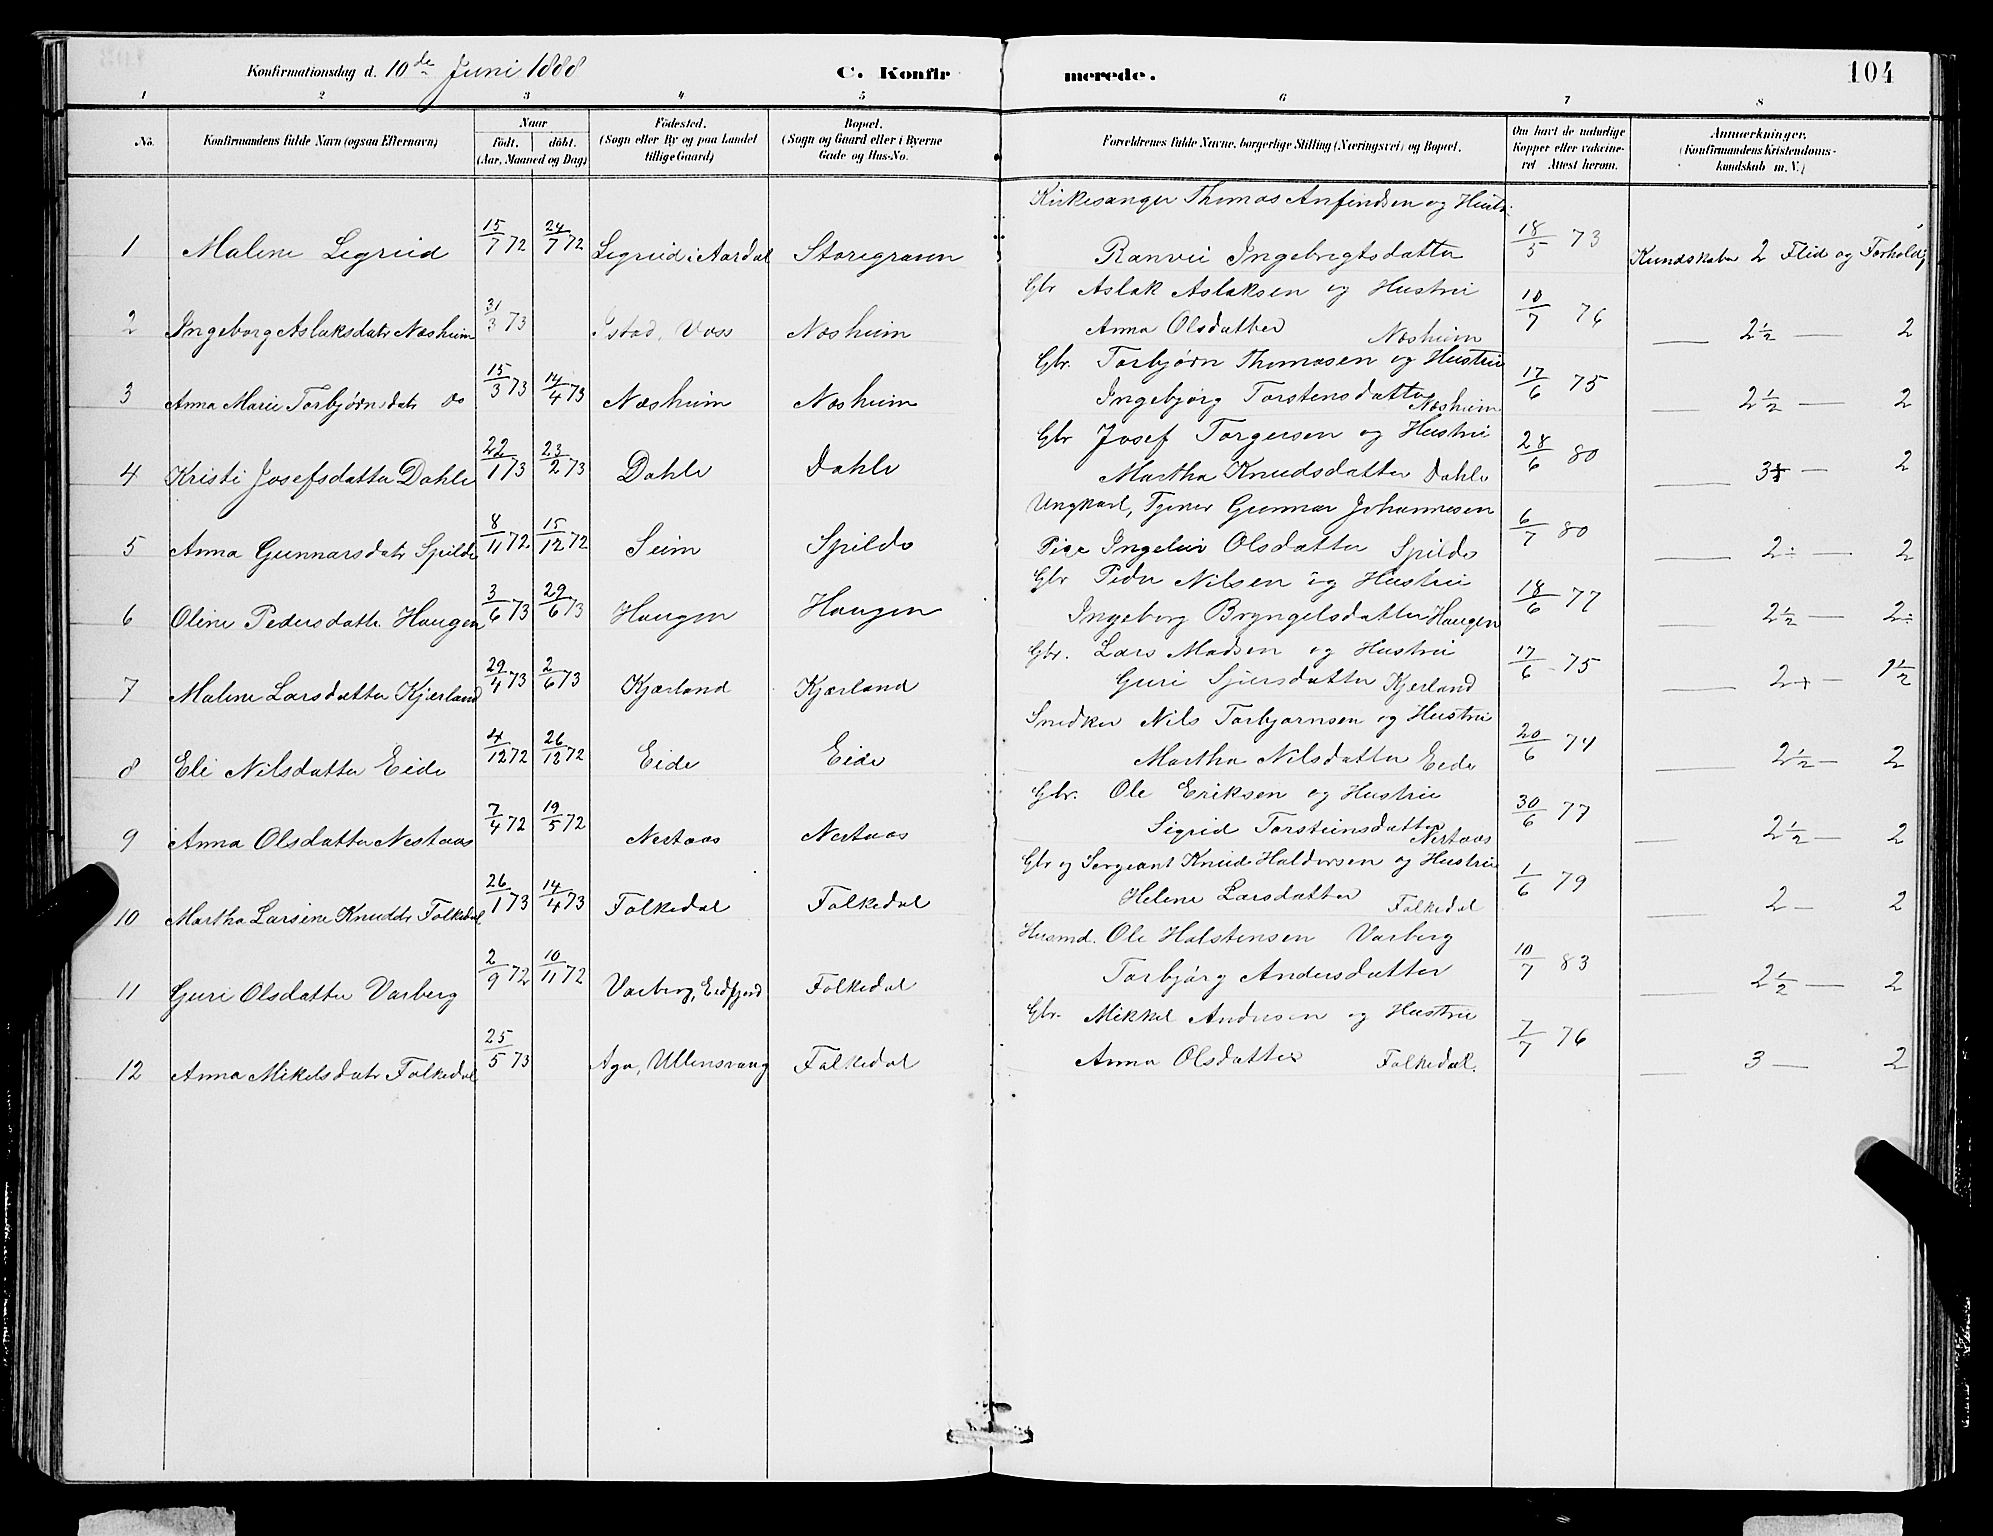 Konfirmationsdag d. 10de Juni 1888 C. Konfirmerede. 104
1 2 3 4 5 6 7 8
No. Konfirmandens fulde Navn (ogsaa Efternavn) Naar født. døbt. (Aar, Maaned og Dag) Fødested. (Sogn eller By og paa Landet tillige Gaard) Bopæl. (Sogn og Gaard eller i Byerne Gade og Hus-No. Forældrenes fulde Navne, borgerlige Stilling (Næringsvei) og Bopæl. Om havt de naturlige Kopper eller vakcineret Attest herom. Anmærkninger. (Konfirmandens Kristendomskundskab m.V.)
Kirkesanger Thomas Anfindsen og Hustru
1 Malene Legreid 15/7 72 24/7 72 Legreid i Aardal Storegraven Ranvei Ingebrigtsdatter 18/5 73 Kundskaber 2 Flid og Forhold
Gbr Aslak Aslaksen og Hustru
2 Ingeborg Aslaksdatr Næsheim 31/3 73 Istad, Voss Næsheim Anna Olsdatter Næsheim 10/7 76 — 2½ — 2
Gbr. Torbjørn Thomasen og Hustru
3 Anna Marie Torbjørnsdatr do 15/3 73 14/4 73 Næsheim Næsheim Ingebjørg Torstensdatter Næsheim 17/6 75 — 2½ — 2
Gbr Josef Torgersen og Hustru
4 Kristi Josefsdatter Dahle 22/1 73 23/2 73 Dahle Dahle Martha Knudsdatter Dahle 28/6 80 — 3+ — 2
Ungkarl, Tjener Gunnar Johannesen
5 Anna Gunnarsdatr Spilde 8/11 72 15/12 72 Seim Spilde Pige Ingeleiv Olsdatter Spilde 6/7 80 — 2÷ — 2
Gbr Peder Nilsen og Hustru
6 Oline Pedersdattr Haugen 3/6 73 29/6 73 Haugen Haugen Ingeborg Bryngelsdatter Haugen 18/6 77 — 2½ — 2÷
Gbr. Lars Madsen og Hustru
7 Malene Larsdatter Kjerland 29/4 73 2/6 73 Kjærland Kjærland Guri Sjursdatter Kjerland 17/6 75 — 2+ — 1½
Snedker Nils Torbjørnsen og Hustru
8 Eli Nilsdatter Eide 4/12 72 26/12 72 Eide Eide Martha Nilsdatter Eide 20/6 74 — 2½ — 2
Gbr. Ole Eriksen og Hustru
9 Anna Olsdatter Nestaas 7/4 72 19/5 72 Nestaas Nestaas Sigrid Torsteinsdatter Nestaas 30/6 77 — 2½ — 2
Gbr og Sergeant Knud Haldorsen og Hustru
10 Martha Larsine Knudsdr Folkedal 26/1 73 14/4 73 Folkedal Folkedal Helene Larsdatter Folkedal 1/6 79 — 2 — 2
Husmd. Ole Halstensen Varberg
11 Guri Olsdatter Varberg 2/9 72 10/11 72 Varberg, Eidfjord Folkedal Torbjørg Andersdatter 10/7 83 — 2½ — 2
Gbr. Mikkel Andersen og Hustru
12 Anna Mikelsdatr Folkedal 25/5 73 Aga, Ullensvang Folkedal Anna Olsdatter Folkedal. 7/7 76 — 3 — 2